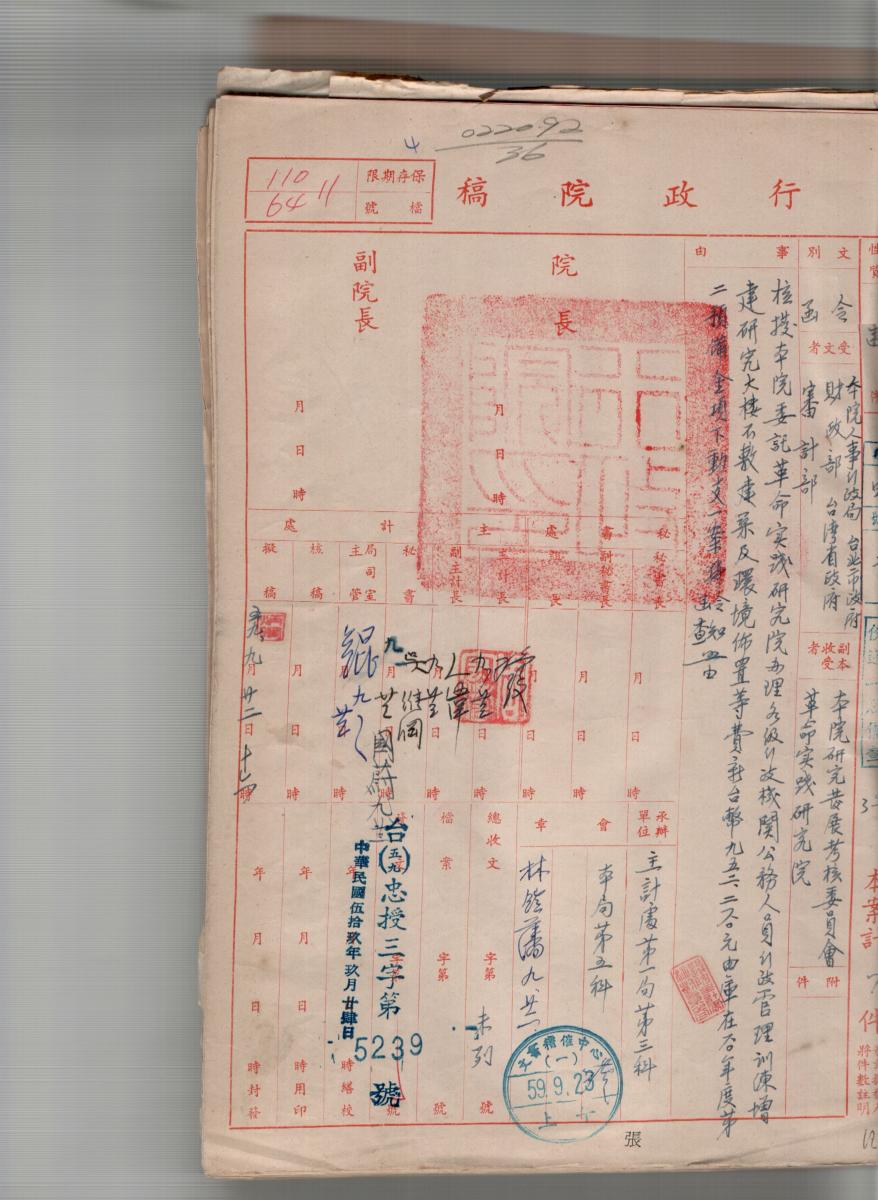 022092
36
4
行政院稿
保存期限
檔號
110
64 11
文別
令
函
受文者
本院人事行政局 台北市政府
財政部 台湾省政府
審計部
副本收受者
本院研究發展考核委員會
革命实践研究院
附件
本案計
件
事由
核撥本院委託革命实践研究院办理各级行政机関公務人員行政管理训练增
建研究大楼不敷建築及環境佈置等費新台幣九五二二〇〇元由庫在60年度第
二預備金項下動支一案
查照由
院長
月日時
副院長
月日時
秘書處
秘書長
副秘書長
主計處
主計長
副主計長
秘書
局司室主管
核稿
擬稿
月日時
五九九月廿二日
吳继岡
承辦單位
主計處第一局第三科
會章
本局第五科
林
總收文
字第
號
未列
檔案
字第
號
台(五九)忠授三字第
5239
號
中華民國伍拾玖年玖月廿肆日
年月日時繕校
年月日時用印
年月日時封發
文書稽催中心
(一)
59.9.23
上
張